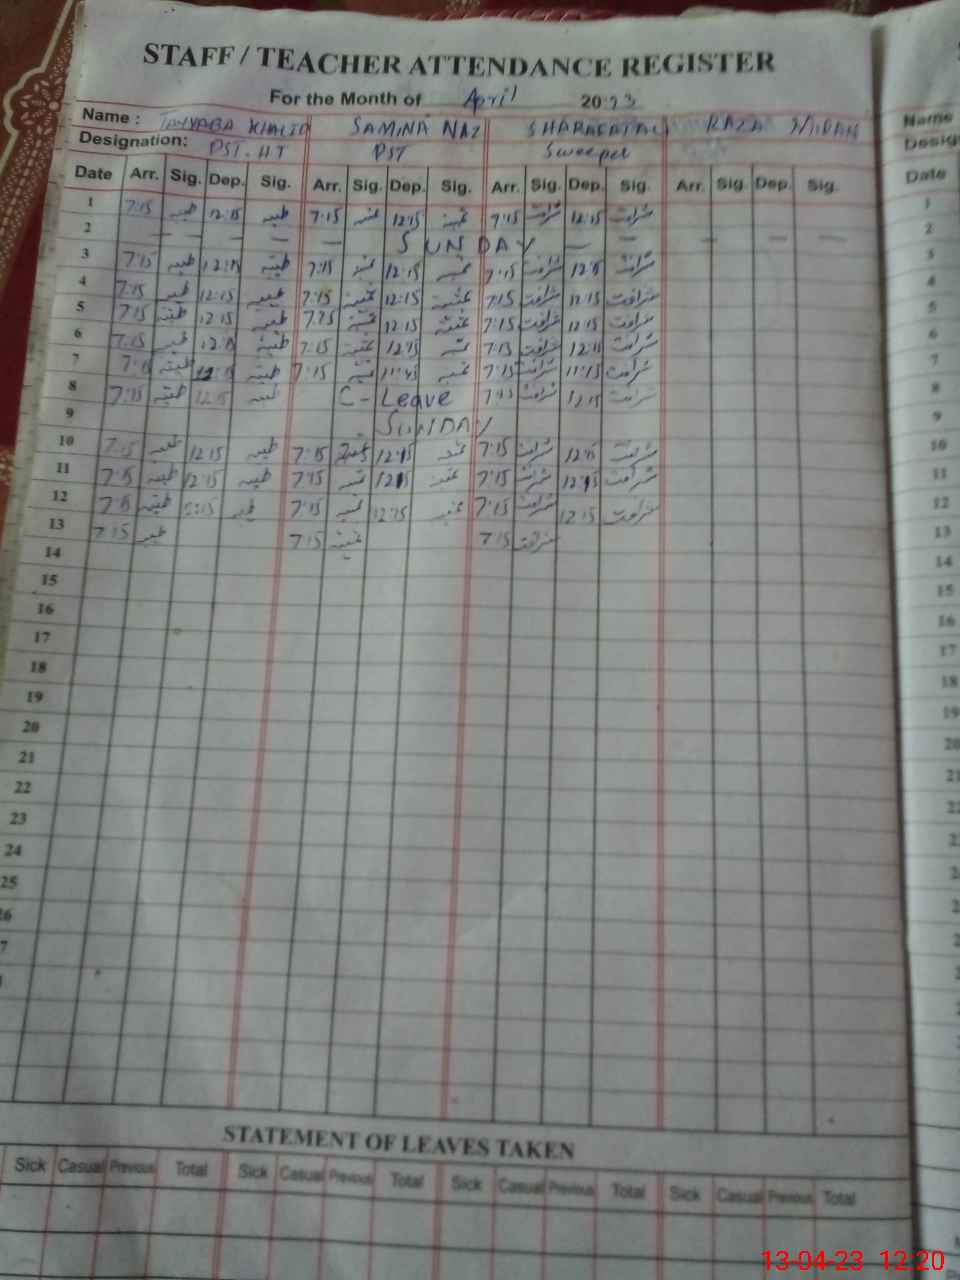 STAFF / TEACHER ATTENDANCE REGISTER
For the Month of April 2023
Name : TAYYABA KHALID SAMINA NAZ SHARAFAT ALI RAZA
Name
Designation: PST. HT PST Sweeper
Desig
Date Arr. Sig. Dep. Sig. Arr. Sig. Dep. Sig. Arr. Sig. Dep. Sig. Arr. Sig. Dep. Sig.
Date
1 7:15 طیبہ 12:15 طیبہ 7:15 12:15 7:15 شرافت 12:15 شرافت
1
2 — — — — — SUNDAY — — — — —
2
3 7:15 طیبہ 12:15 طیبہ 7:15 12:15 7:15 شرافت 12:15 شرافت
3
4 7:15 طیبہ 12:15 طیبہ 7:15 12:15 7:15 شرافت 12:15 شرافت
4
5 7:15 طیبہ 12:15 طیبہ 7:15 12:15 7:15 شرافت 12:15 شرافت
5
6 7:15 طیبہ 12:15 طیبہ 7:15 12:15 7:15 شرافت 12:15 شرافت
6
7 7:15 طیبہ طیبہ 7:15 11:45 7:15 شرافت 11:15 شرافت
7
8 7:15 طیبہ 12:15 طیبہ C- Leave شرافت 12:15 شرافت
8
9 SUNDAY
9
10 7:15 طیبہ 12:15 طیبہ 7:15 12:15 7:15 شرافت 12:15 شرافت
10
11 7:15 طیبہ 12:15 طیبہ 7:15 12:15 7:15 شرافت 12:15 شرافت
11
12 7:15 طیبہ 12:15 طیبہ 7:15 12:15 7:15 شرافت 12:15 شرافت
12
13 7:15 طیبہ 7:15 7:15 شرافت
13
14
14
15
15
16
16
17
17
18
18
19
19
20
20
21
21
22
22
23
24
25
26
7
STATEMENT OF LEAVES TAKEN
Sick Casual Previous Total Sick Casual Previous Total Sick Casual Previous Total Sick Casual Previous Total
13-04-23 12:20